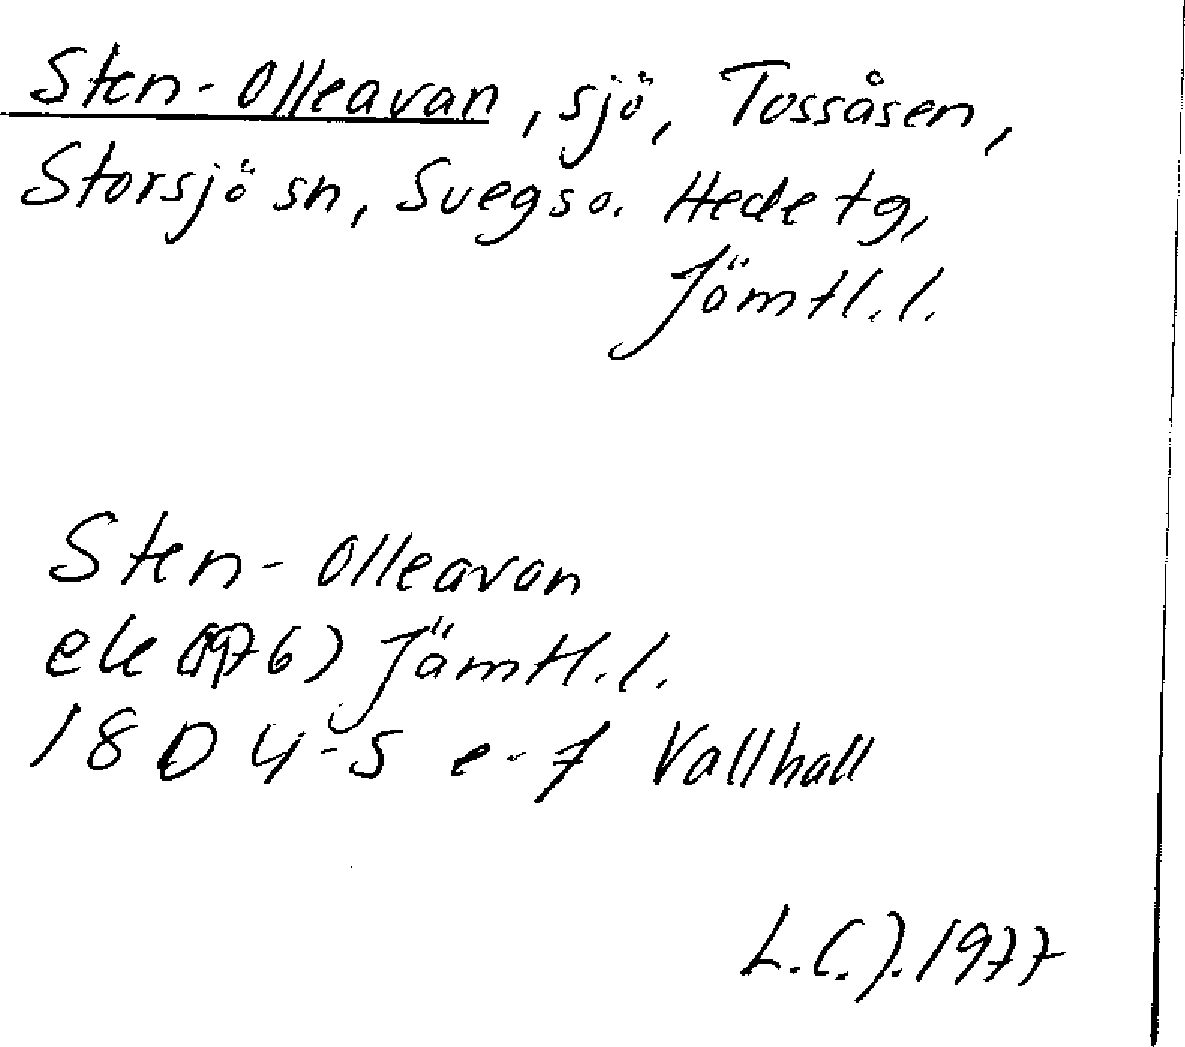 Sten-Olleavan, sjö, Tossåsen,
Storsjö sn, Svegs o. Hede tg,
Jämtl. l.
Sten-Olleavan
ek (1976) Jämtl. l.
18 D 4-5 e-f Vallhall
L.C.J. 1977